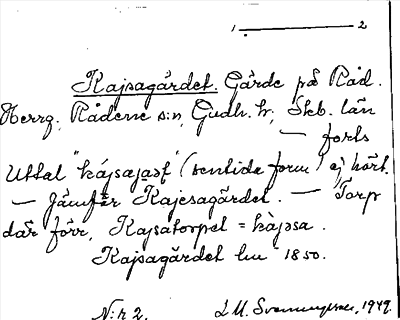 1 2
Kajsagärdet. Gärde på Råd.
Herrg, Rådene sn, Gudh. hr, Skb. län
— forts
Uttal "kájsajaṣt" (sentida form) ej hört.
— Jämför Kajesagärdet. — Torp
där förr, Kajsatorpet = kàjssa.
Kajsagärdet hm 1850.
N:r 2. 1949.